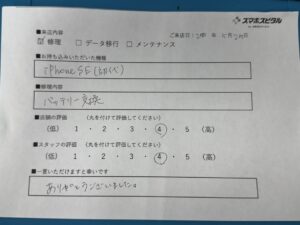 スマホスピタル
■ご来店内容
ご来店日：
☑ 修理 □ データ移行 □ メンテナンス
■お持ち込みいただいた機種
iPhone SE(初代)
■修理内容
バッテリー交換
■店舗の評価 (丸を付けて評価してください)
(低) 1 ・ 2 ・ 3 ・ 4 ・ 5 (高)
■スタッフの評価 (丸を付けて評価してください)
(低) 1 ・ 2 ・ 3 ・ 4 ・ 5 (高)
■一言いただけますと幸いです
ありがとうございました。